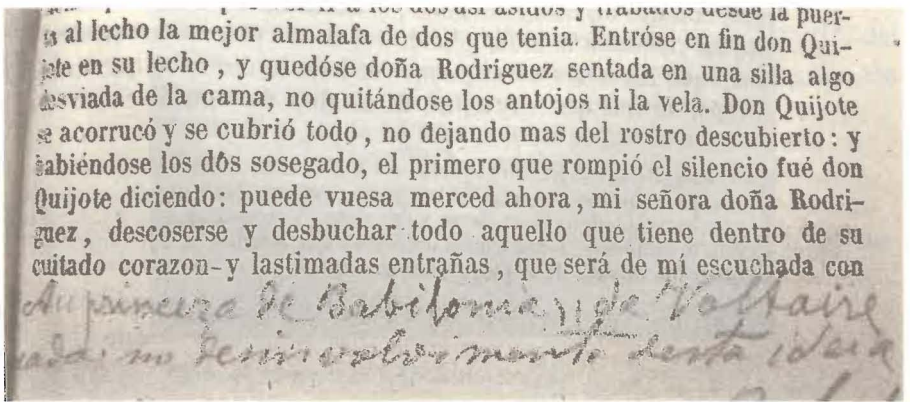 á los dos así asidos y trabados desde la puer-
al lecho la mejor almalafa de dos que tenia. Entróse en fin don Qui-
jote en su lecho, y quedóse doña Rodriguez sentada en una silla algo
desviada de la cama, no quitándose los antojos ni la vela. Don Quijote
se acorrucó y se cubrió todo, no dejando mas del rostro descubierto: y
habiéndose los dos sosegado, el primero que rompió el silencio fué don
Quijote diciendo: puede vuesa merced ahora, mi señora doña Rodri-
guez, descoserse y desbuchar todo aquello que tiene dentro de su
cuitado corazon y lastimadas entrañas, que será de mí escuchada con
princeza de Babilonia, de Voltaire
no desinvolvimento desta ideia